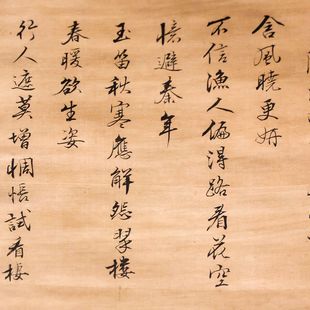 含風曉更妍
不信漁人偏得路看花空
憶避秦年
玉笛秋寒應解怨翠樓
春暖欲生姿
行人遮莫增惆悵試看樓